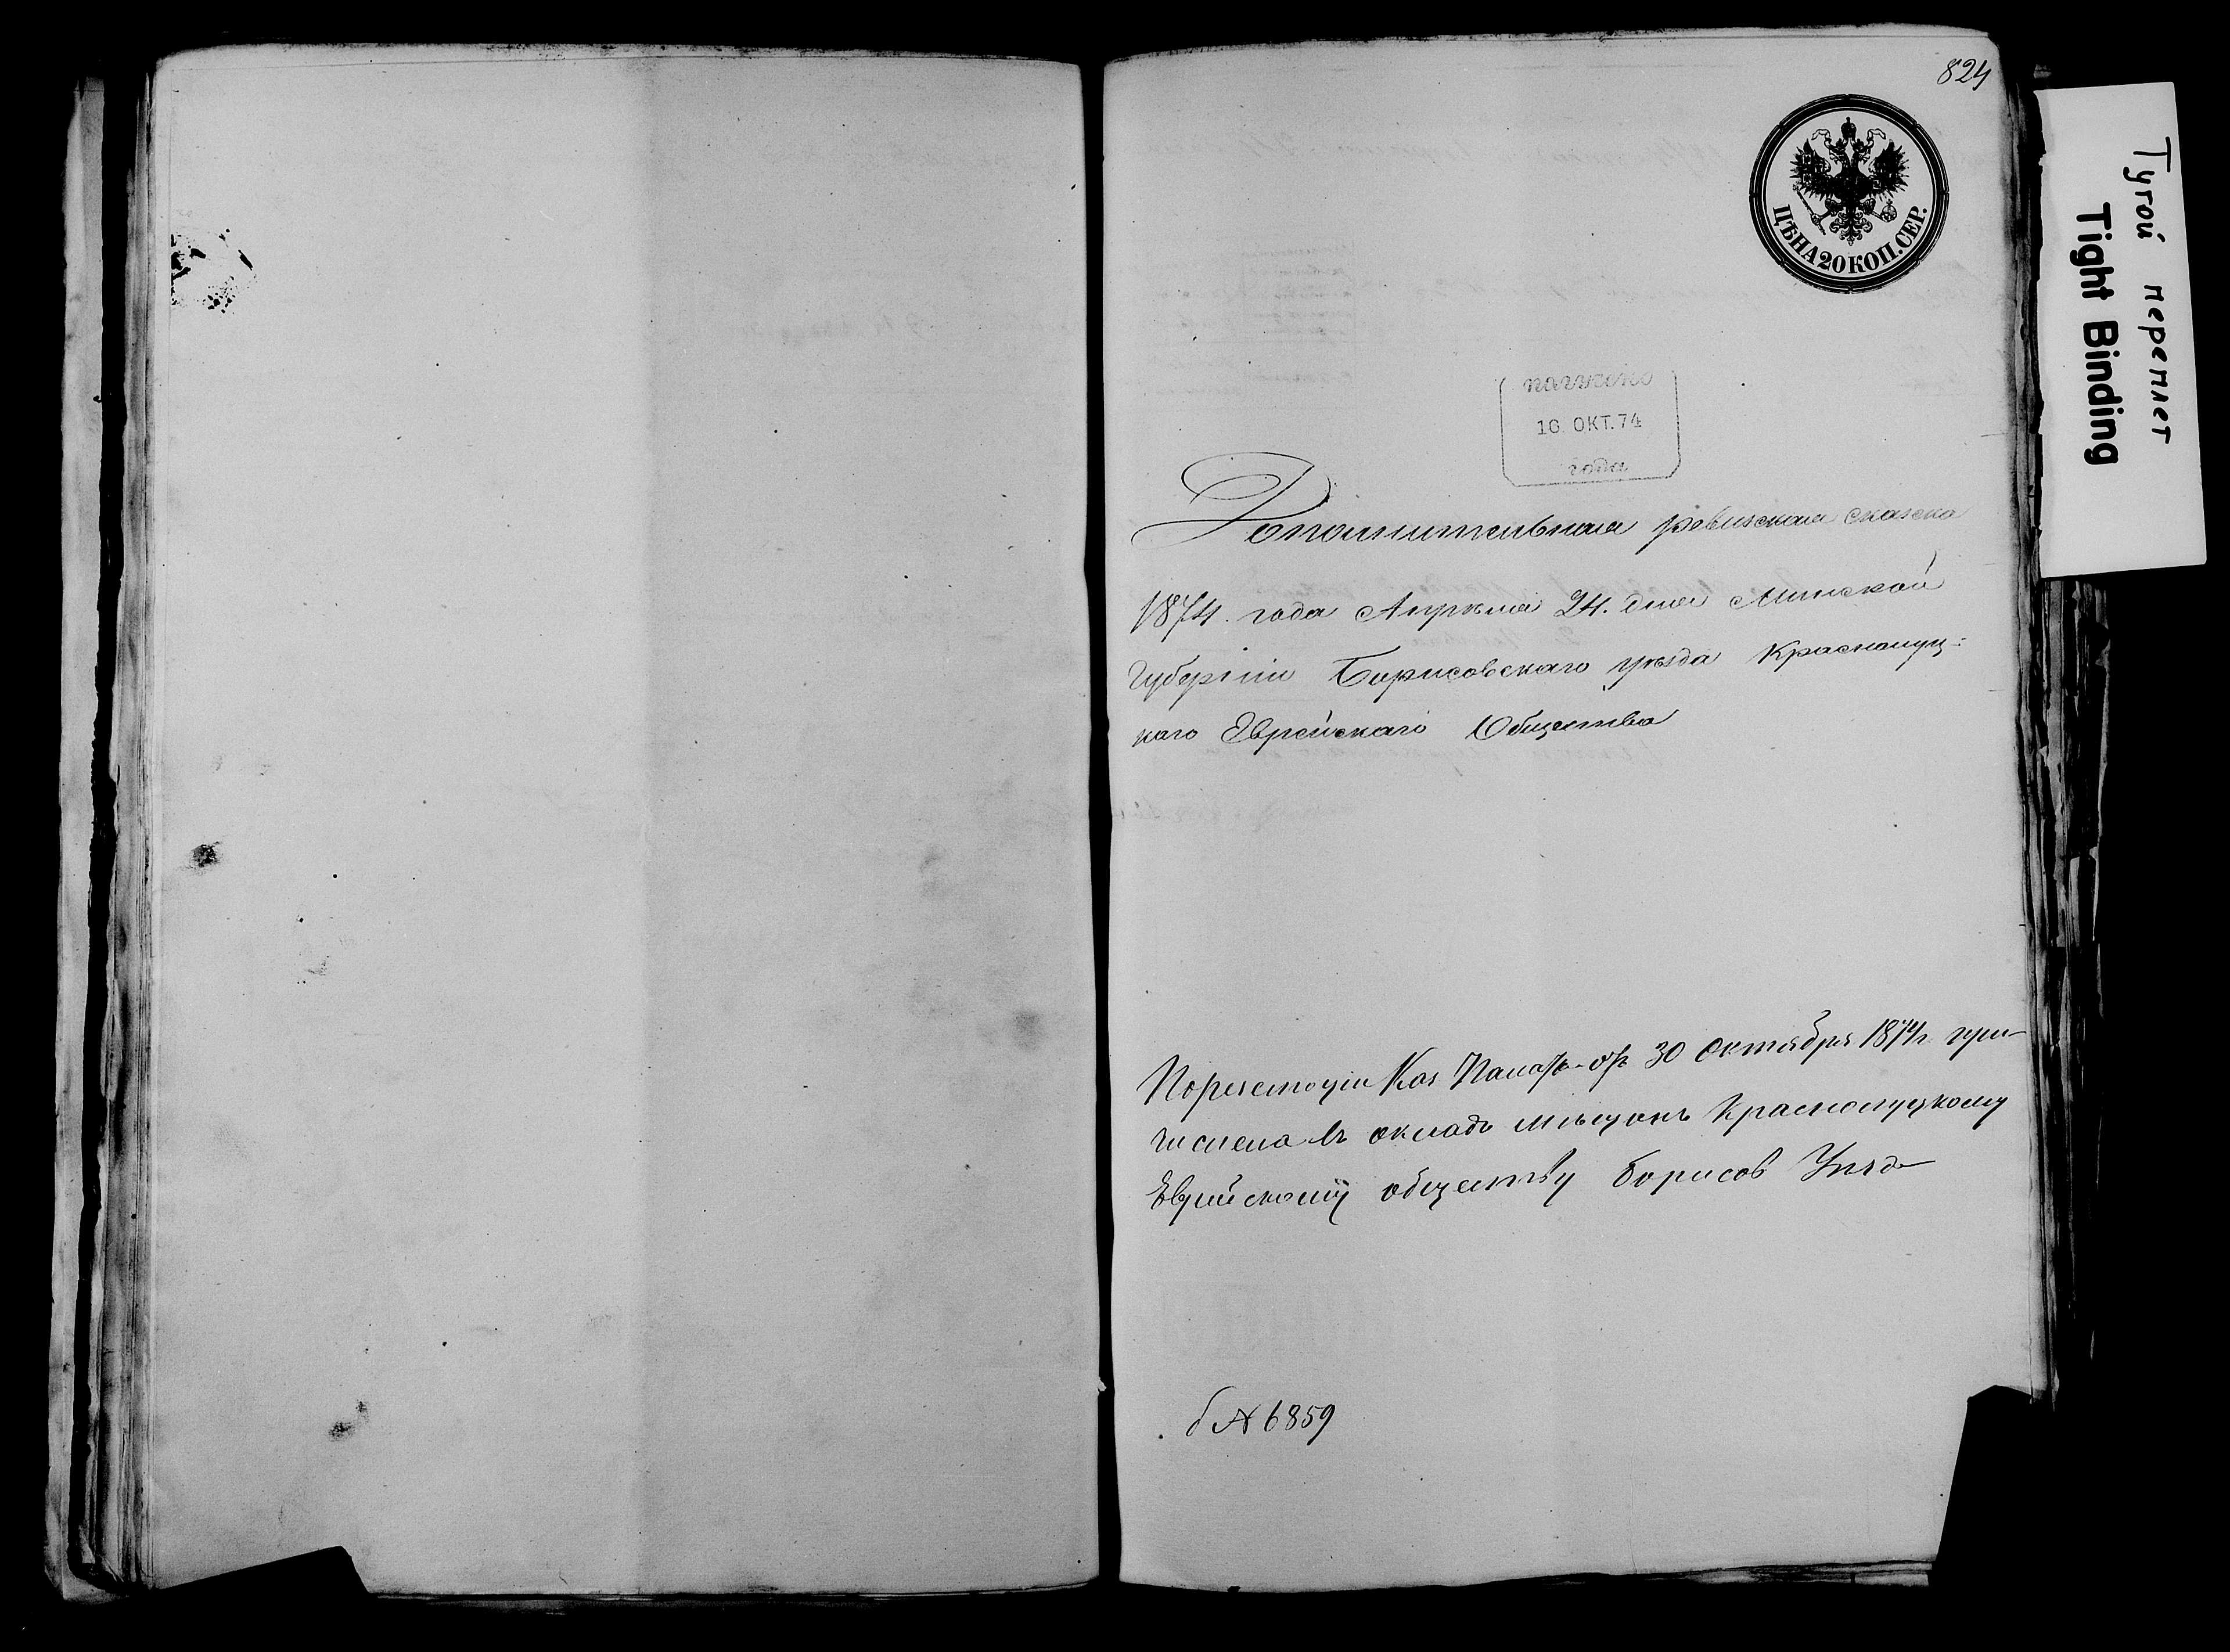 824
ЦѢНА 20 КОП. СЕР.
Тугой переплет
Tight Binding
10. ОКТ. 74
года
Дополнительная ревизская сказка
1874. года Апрѣля 24. дня Минской
Губерніи Борисовскаго уѣзда Краснолуц-
каго Еврейскаго Общества
По резолюціи Каз Палаты 30 Октября 1874 г. при-
числена въ окладъ мѣщанъ Краснолуцкому
Еврейскому обществу Борисов Уѣзд
№ 6859